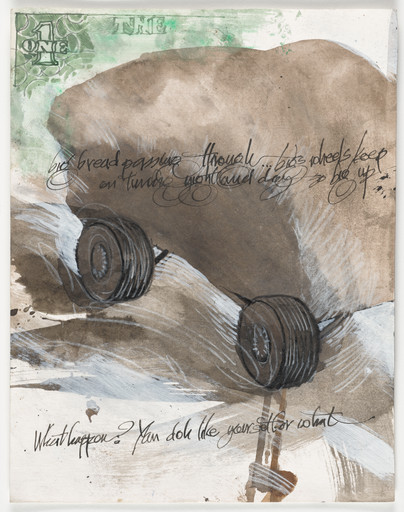 1
ONE
THE
big bread passing through... big wheels keep
on turning night and day so big up
What happen? Yuh dok like yourself or what